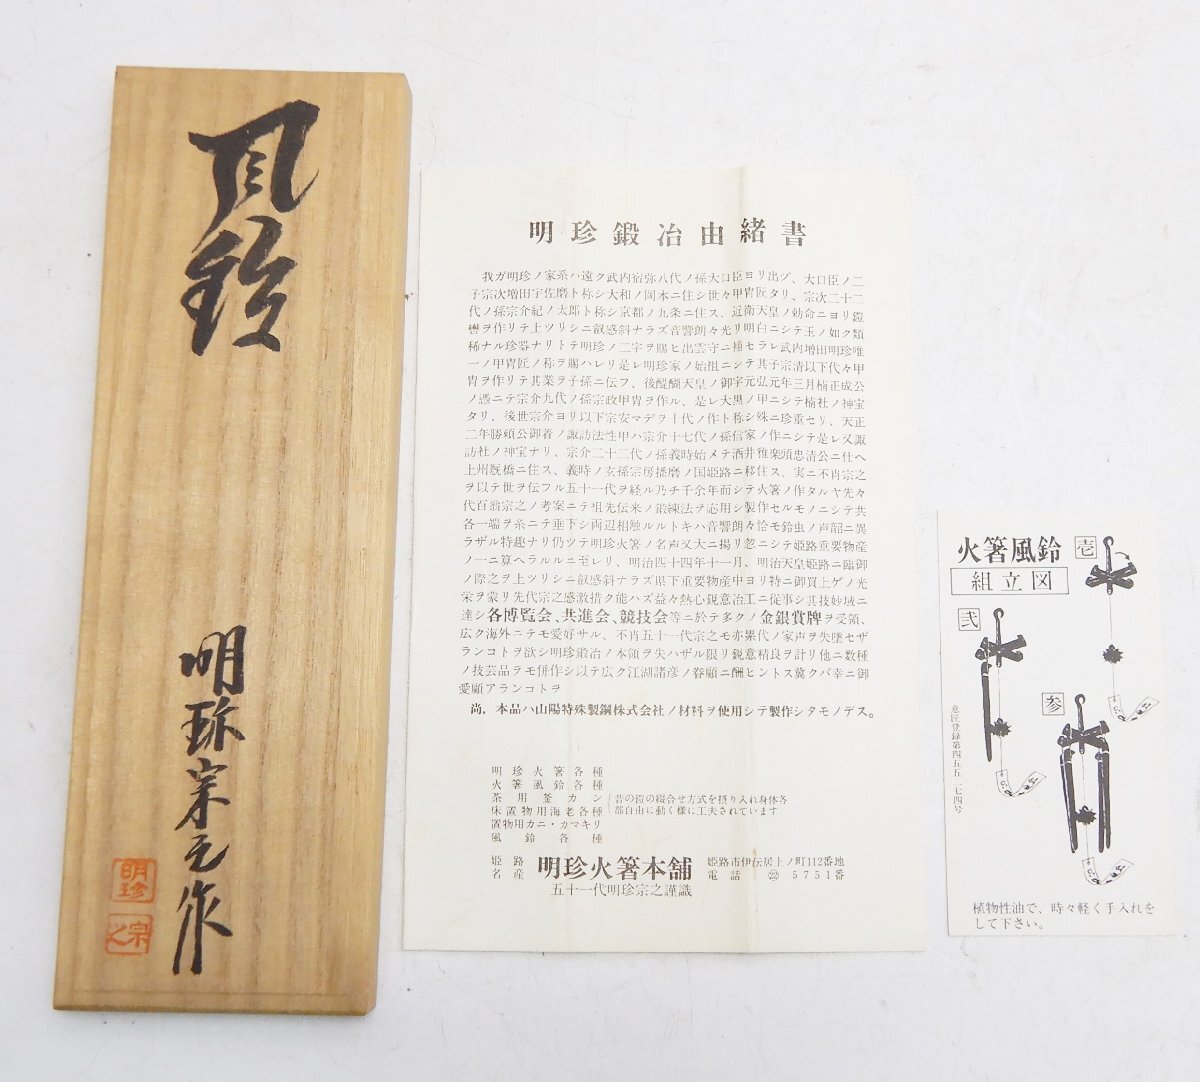 風鈴
明珍宗之作
明珍
宗之
明珍鍛冶由緒書
我ガ明珍ノ家系ハ遠ク武内宿弥八代ノ孫大口臣ヨリ出ヅ、大口臣ノ二
子宗次増田宇佐磨ト称シ大和ノ岡本ニ住シ世々甲冑匠タリ、宗次二十二
代ノ孫宗介紀ノ太郎ト称シ京都ノ九条ニ住ス、近衛天皇ノ勅命ニヨリ鎧
轡ヲ作リテ上ツリシニ叡感斜ナラズ音響朗々光リ明白ニシテ玉ノ如ク類
稀ナル珍器ナリトテ明珍ノ二字ヲ賜ヒ出雲守ニ補セラレ武内増田明珍唯
一ノ甲冑匠ノ称ヲ賜ハレリ是レ明珍家ノ始祖ニシテ其子宗清以下代々甲
冑ヲ作リテ其業ヲ子孫ニ伝フ、後醍醐天皇ノ御宇元弘元年三月楠正成公
ノ憑ニテ宗介九代ノ孫宗政甲冑ヲ作ル、是レ大黒ノ甲ニシテ楠社ノ神宝
タリ、後世宗介ヨリ以下宗安マデヲ十代ノ作ト称シ殊ニ珍重セリ、天正
二年勝頼公御着ノ諏訪法性甲ハ宗介十七代ノ孫信家ノ作ニシテ是レ又諏
訪社ノ神宝ナリ、宗介二十二代ノ孫義時始メテ酒井雅楽頭忠清公ニ仕ヘ
上州厩橋ニ住ス、義時ノ玄孫宗房播磨ノ国姫路ニ移住ス、実ニ不肖宗之
ヲ以テ世ヲ伝フル五十一代ヲ経ル乃チ千余年而シテ火箸ノ作タルヤ先々
代百翁宗之ノ考案ニテ祖先伝来ノ鍛練法ヲ応用シ製作セルモノニシテ共
各一端ヲ糸ニテ垂下シ両辺相触ルルトキハ音響朗々恰モ鈴虫ノ声韶ニ異
ラザル特趣ナリ仍ツテ明珍火箸ノ名声又大ニ揚リ忽ニシテ姫路重要物産
ノ一ニ算ヘラルルニ至レリ、明治四十四年十一月、明治天皇姫路ニ臨御
ノ際之ヲ上ツリシニ叡感斜ナラズ県下重要物産中ヨリ特ニ御買上ゲノ光
栄ヲ蒙リ先代宗之感激措ク能ハズ益々熱心鋭意冶工ニ従事シ其技妙域ニ
達シ各博覧会、共進会、競技会等ニ於テ多クノ金銀賞牌ヲ受領、
広ク海外ニテモ愛好サル、不肖五十一代宗之モ亦累代ノ家声ヲ失墜セザ
ランコトヲ欲シ明珍鍛冶ノ本領ヲ失ハザル限リ鋭意精良ヲ計リ他ニ数種
ノ技芸品ラモ併作シ以テ広ク江湖諸彦ノ眷顧ニ酬ヒントス冀クバ幸ニ御
愛顧アランコトヲ
尚、本品ハ山陽特殊製鋼株式会社ノ材料ヲ使用シテ製作シタモノデス。
明珍火箸各種
火箸風鈴各種
茶用釜カン
床置物用海老各種
昔の鎧の綴合せ方式を摂り入れ身体各
部自由に動く様に工夫されています
置物用カニ・カマキリ
風鈴各種
姫路名産 明珍火箸本舗
姫路市伊伝居上ノ町112番地
電話 ㉒ 5751番
五十一代明珍宗之謹識
火箸風鈴
組立図
壱
弐
参
意匠登録第四五五一七四号
植物性油で、時々軽く手入れを
して下さい。